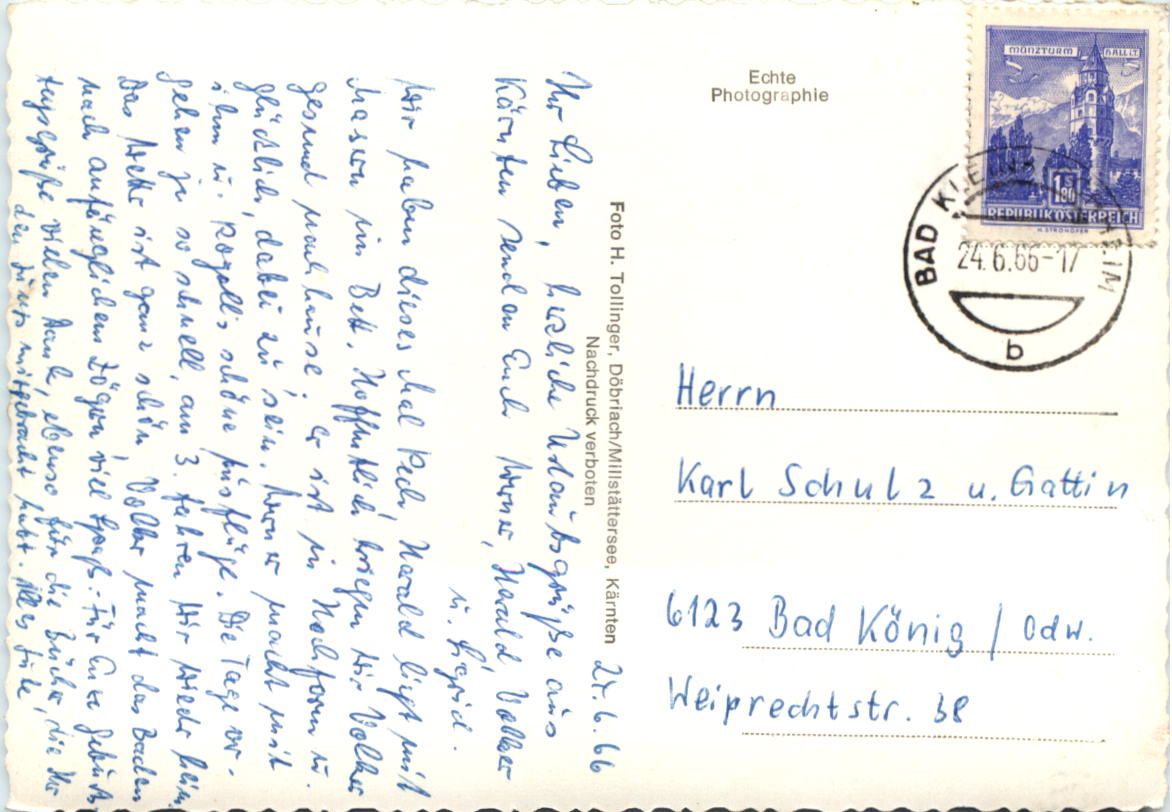 Echte
Photographie
MÜNZTURM HALL i.T.
1.80
REPUBLIK ÖSTERREICH
BAD KLEIN
24.6.66-17
b
Foto H. Tollinger, Döbriach/Millstättersee, Kärnten
Nachdruck verboten
Herrn
Karl Schulz u. Gattin
6123 Bad König / Odw.
Weiprechtstr. 38
24.6.66
Ihr Lieben, herzliche Urlaubsgrüße aus
Kärnten senden Euch Werner, Harald, Volker
u. Sigrid.
Wir haben dieses Mal Pech, Harald liegt mit
Masern im Bett. Hoffentlich kriegen wir Volker
gesund nach Hause. Er ist in Hochform u.
glücklich dabei zu sein. Werner macht mit
ihm u. schöne Ausflüge. Die Tage ver-
gehen ja so schnell, am 3. fahren wir wieder heim
Das Wetter ist ganz schön. Volker macht das Baden
nach anfänglichem Zögern viel Spaß. Für Eure Geburts-
tagsgrüße vielen Dank, ebenso für die Bücher, die Ihr
den Jungs mitgebracht habt. Alles Gute,